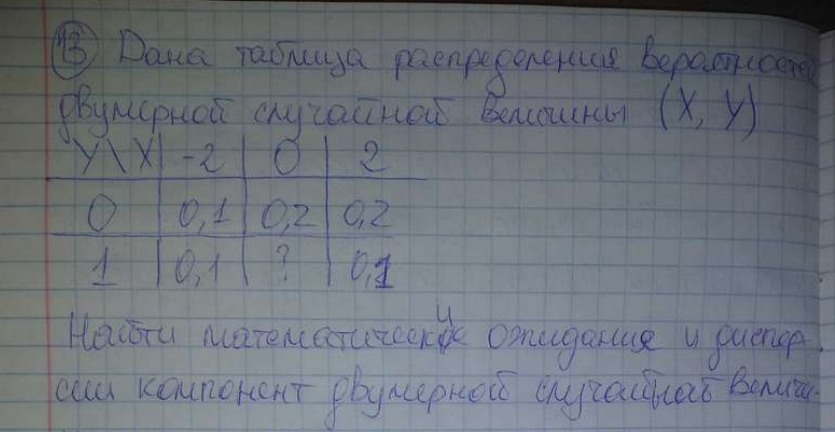 13 Дана таблица распределения вероятностей
двумерной случайной величины (X, Y)
Y\X -2 0 2
0 0,1 0,2 0,2
1 0,1 ? 0,1
Найти математические ожидания и диспер
сии компонент двумерной случайной величи-